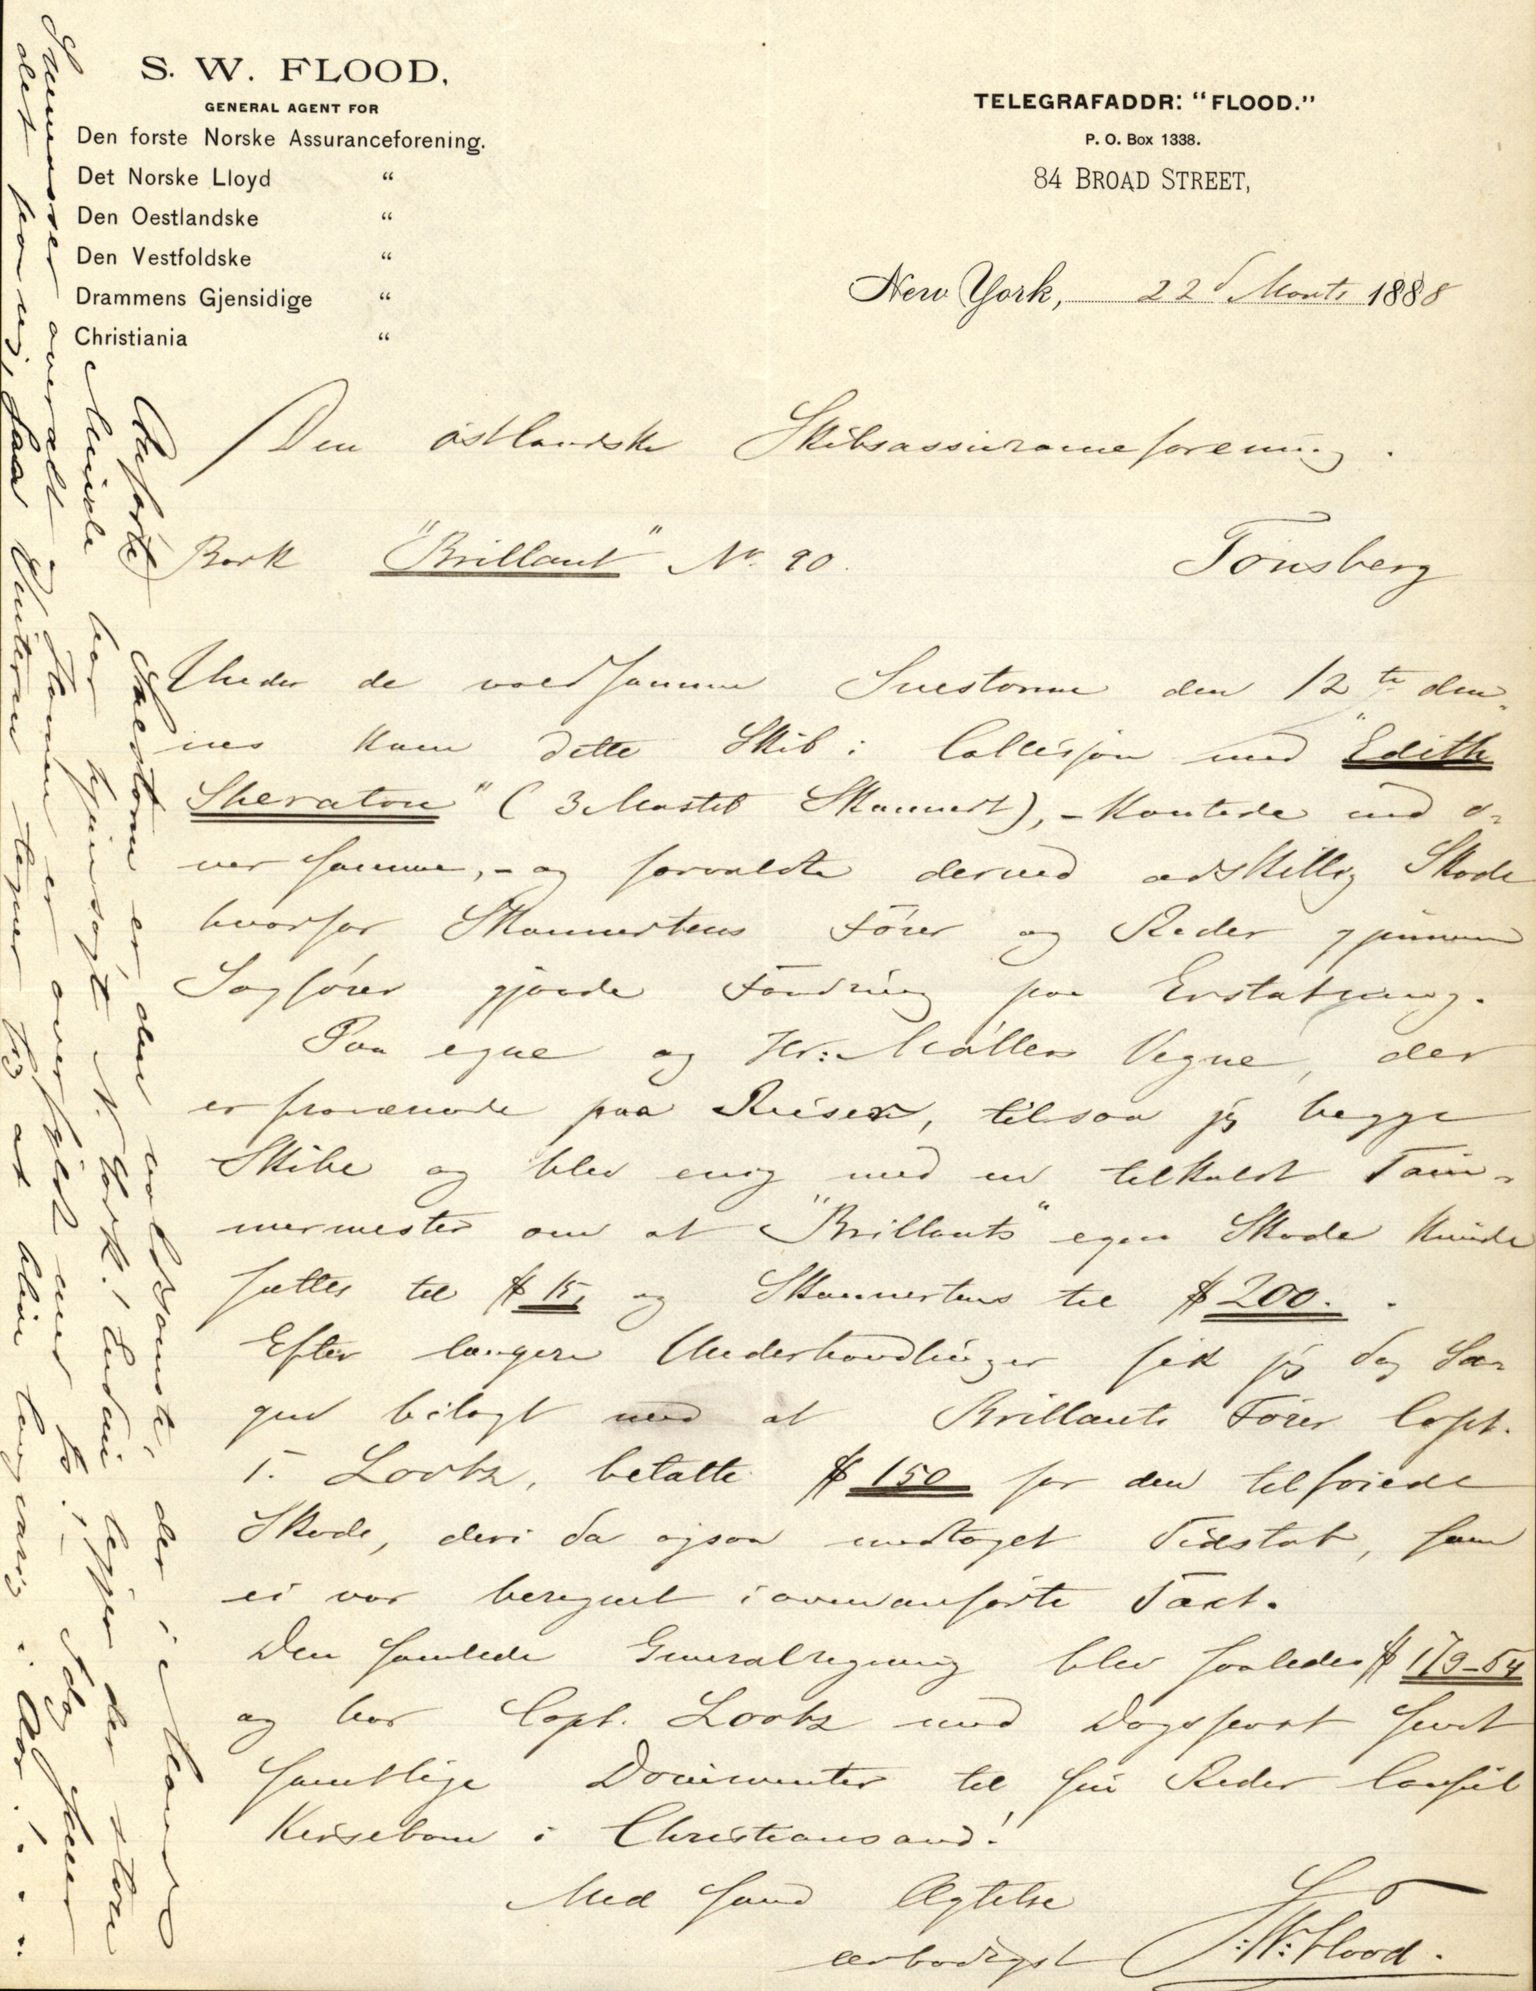 S. W. FLOOD,
GENERAL AGENT FOR
Den forste Norske Assuranceforening.
Det Norske Lloyd "
Den Oestlandske "
Den Vestfoldske "
Drammens Gjensidige "
Christiania "
TELEGRAFADDR: "FLOOD."
P. O. Box 1338.
84 BROAD STREET,
New York, 22d Marts 1888
Den østlandske Skibsassuranceforening.
Bark "Brillant" No. 90.
Tönsberg
Under de voldsomme Snestorme den 12te den-
nes kom dette Skib i Collisjon med "Edith
Sheraton" (3 Mastet Skonnert), - kantede ind o-
ver samme, - og forvoldte derved adskillig Skade
hvorfor Skonnertens Fører og Reder gjennem
Sagfører gjorde Fordring paa Erstatning.
Paa egne og Hr: Møllers Vegne, der
er fraværende paa Reiser, tilsaa jeg begge
Skibe og blev enig med en tilkaldt Töm-
mermester om at "Brillants" egen Skade kunde
sættes til $ 15, og Skonnertens til $ 200. -
Efter længere Underhandlinger fik jeg dog Sa-
gen bilagt med at Brillants Fører Capt.
T. Lootz, betalte $ 150 for den tilføiede
Skade, deri da ogsaa medtaget Tidstab, som
ei var beregnet i ovenanførte Taxt.
Den samlede Generalregning blev saaledes $ 179-54
og har Capt. Lootz med Dagspost sendt
samtlige Documenter til sin Reder Consul
Reinsebom i Christiansand!
Med sand Agtelse
ærbødigst S: W: Flood.
Anførte Snestorm er den voldsomste, der i Mands
Minde har hjemsøgt N. York! Endnu ligger der store
Snemasser overalt. Flommen er overfyldt med Is; - dog seer
det for mig, saa Vinteren tegner til at blive langvarig i Aar! . . .